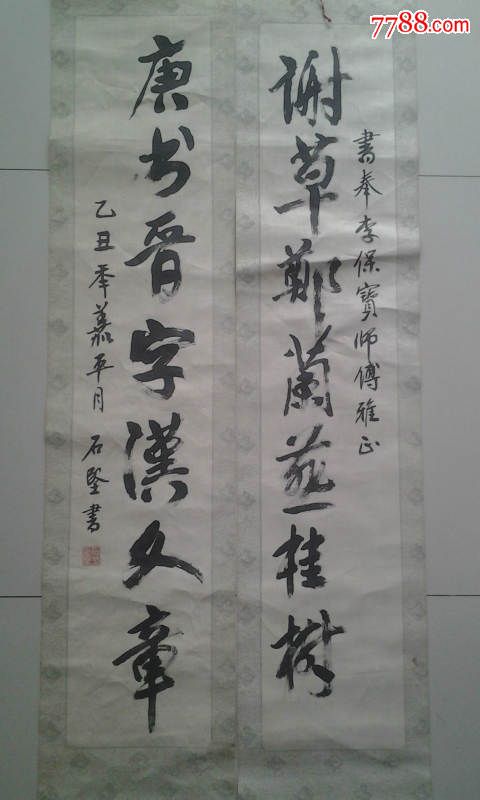 7788.com
書奉李保寶师傅雅正
謝草鄭蘭燕桂樹
唐书晋字漢文章
乙丑年嘉平月 石坚書